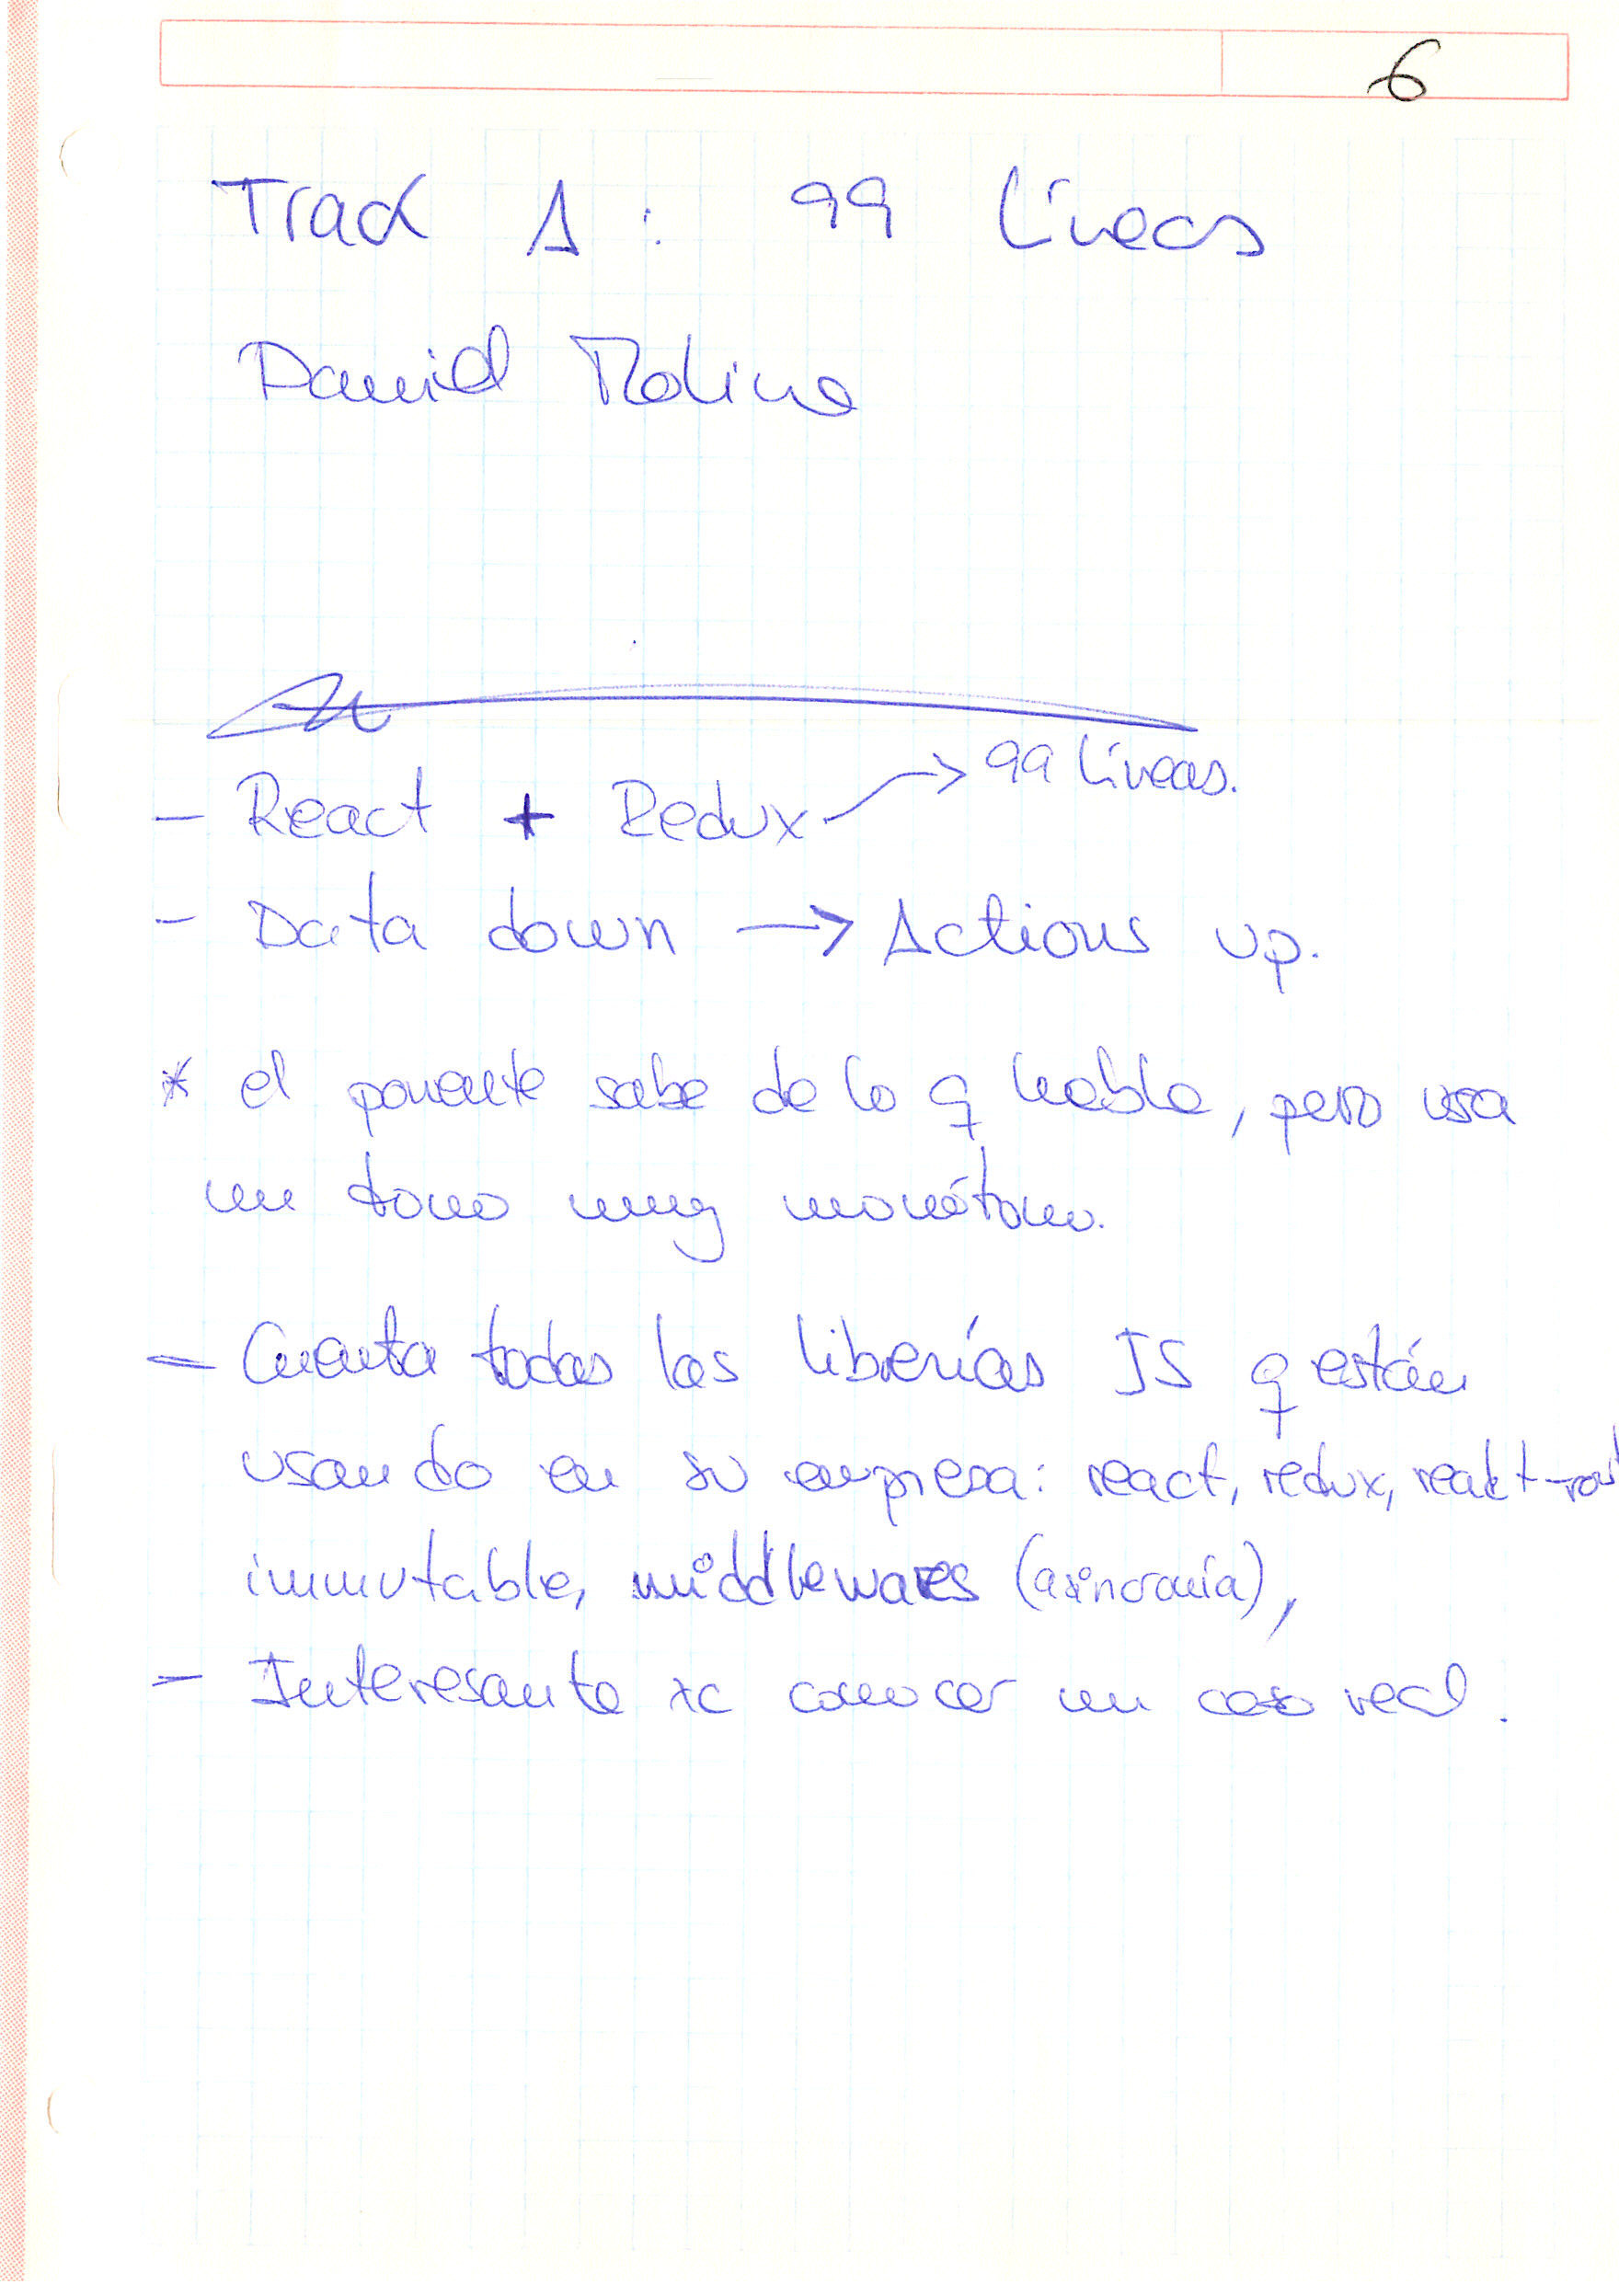 6
Track A: 99 líneas
Daniel Molina
99 líneas.
- React + Redux →
- Data down → Actions up.
* el ponente sabe de lo q habla, pero usa
un tono muy monótono.
- Cuenta todas las librerías JS q están
usando en su empresa: react, redux, react-rout
immutable, middlewares (asincronía),
- Interesante xa conocer un caso real.